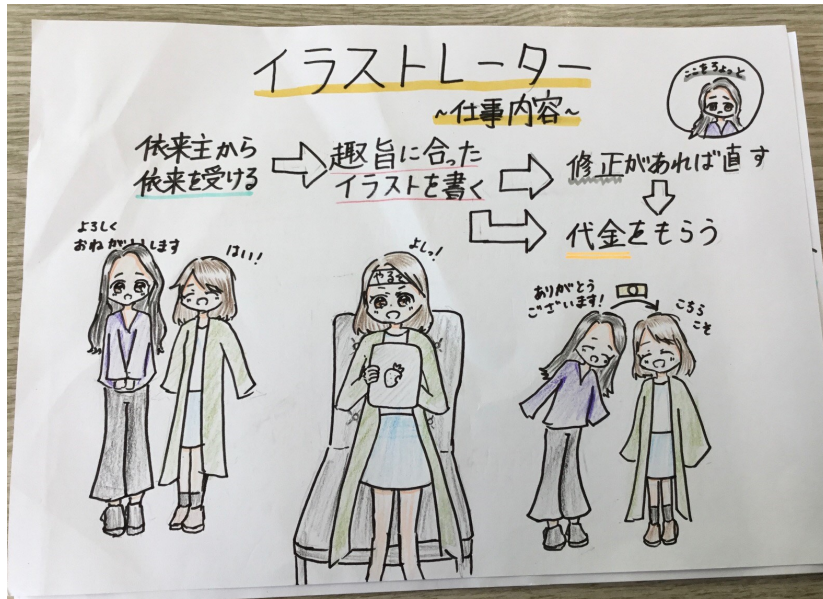 イラストレーター
~仕事内容~
ここをちょっと
依来主から
依来を受ける
趣旨に合った
イラストを書く
修正があれば直す
代金をもらう
よろしく
おねがいします
はい!
よしっ!
やるぞ
ありがとう
ございます!
こちら
こそ